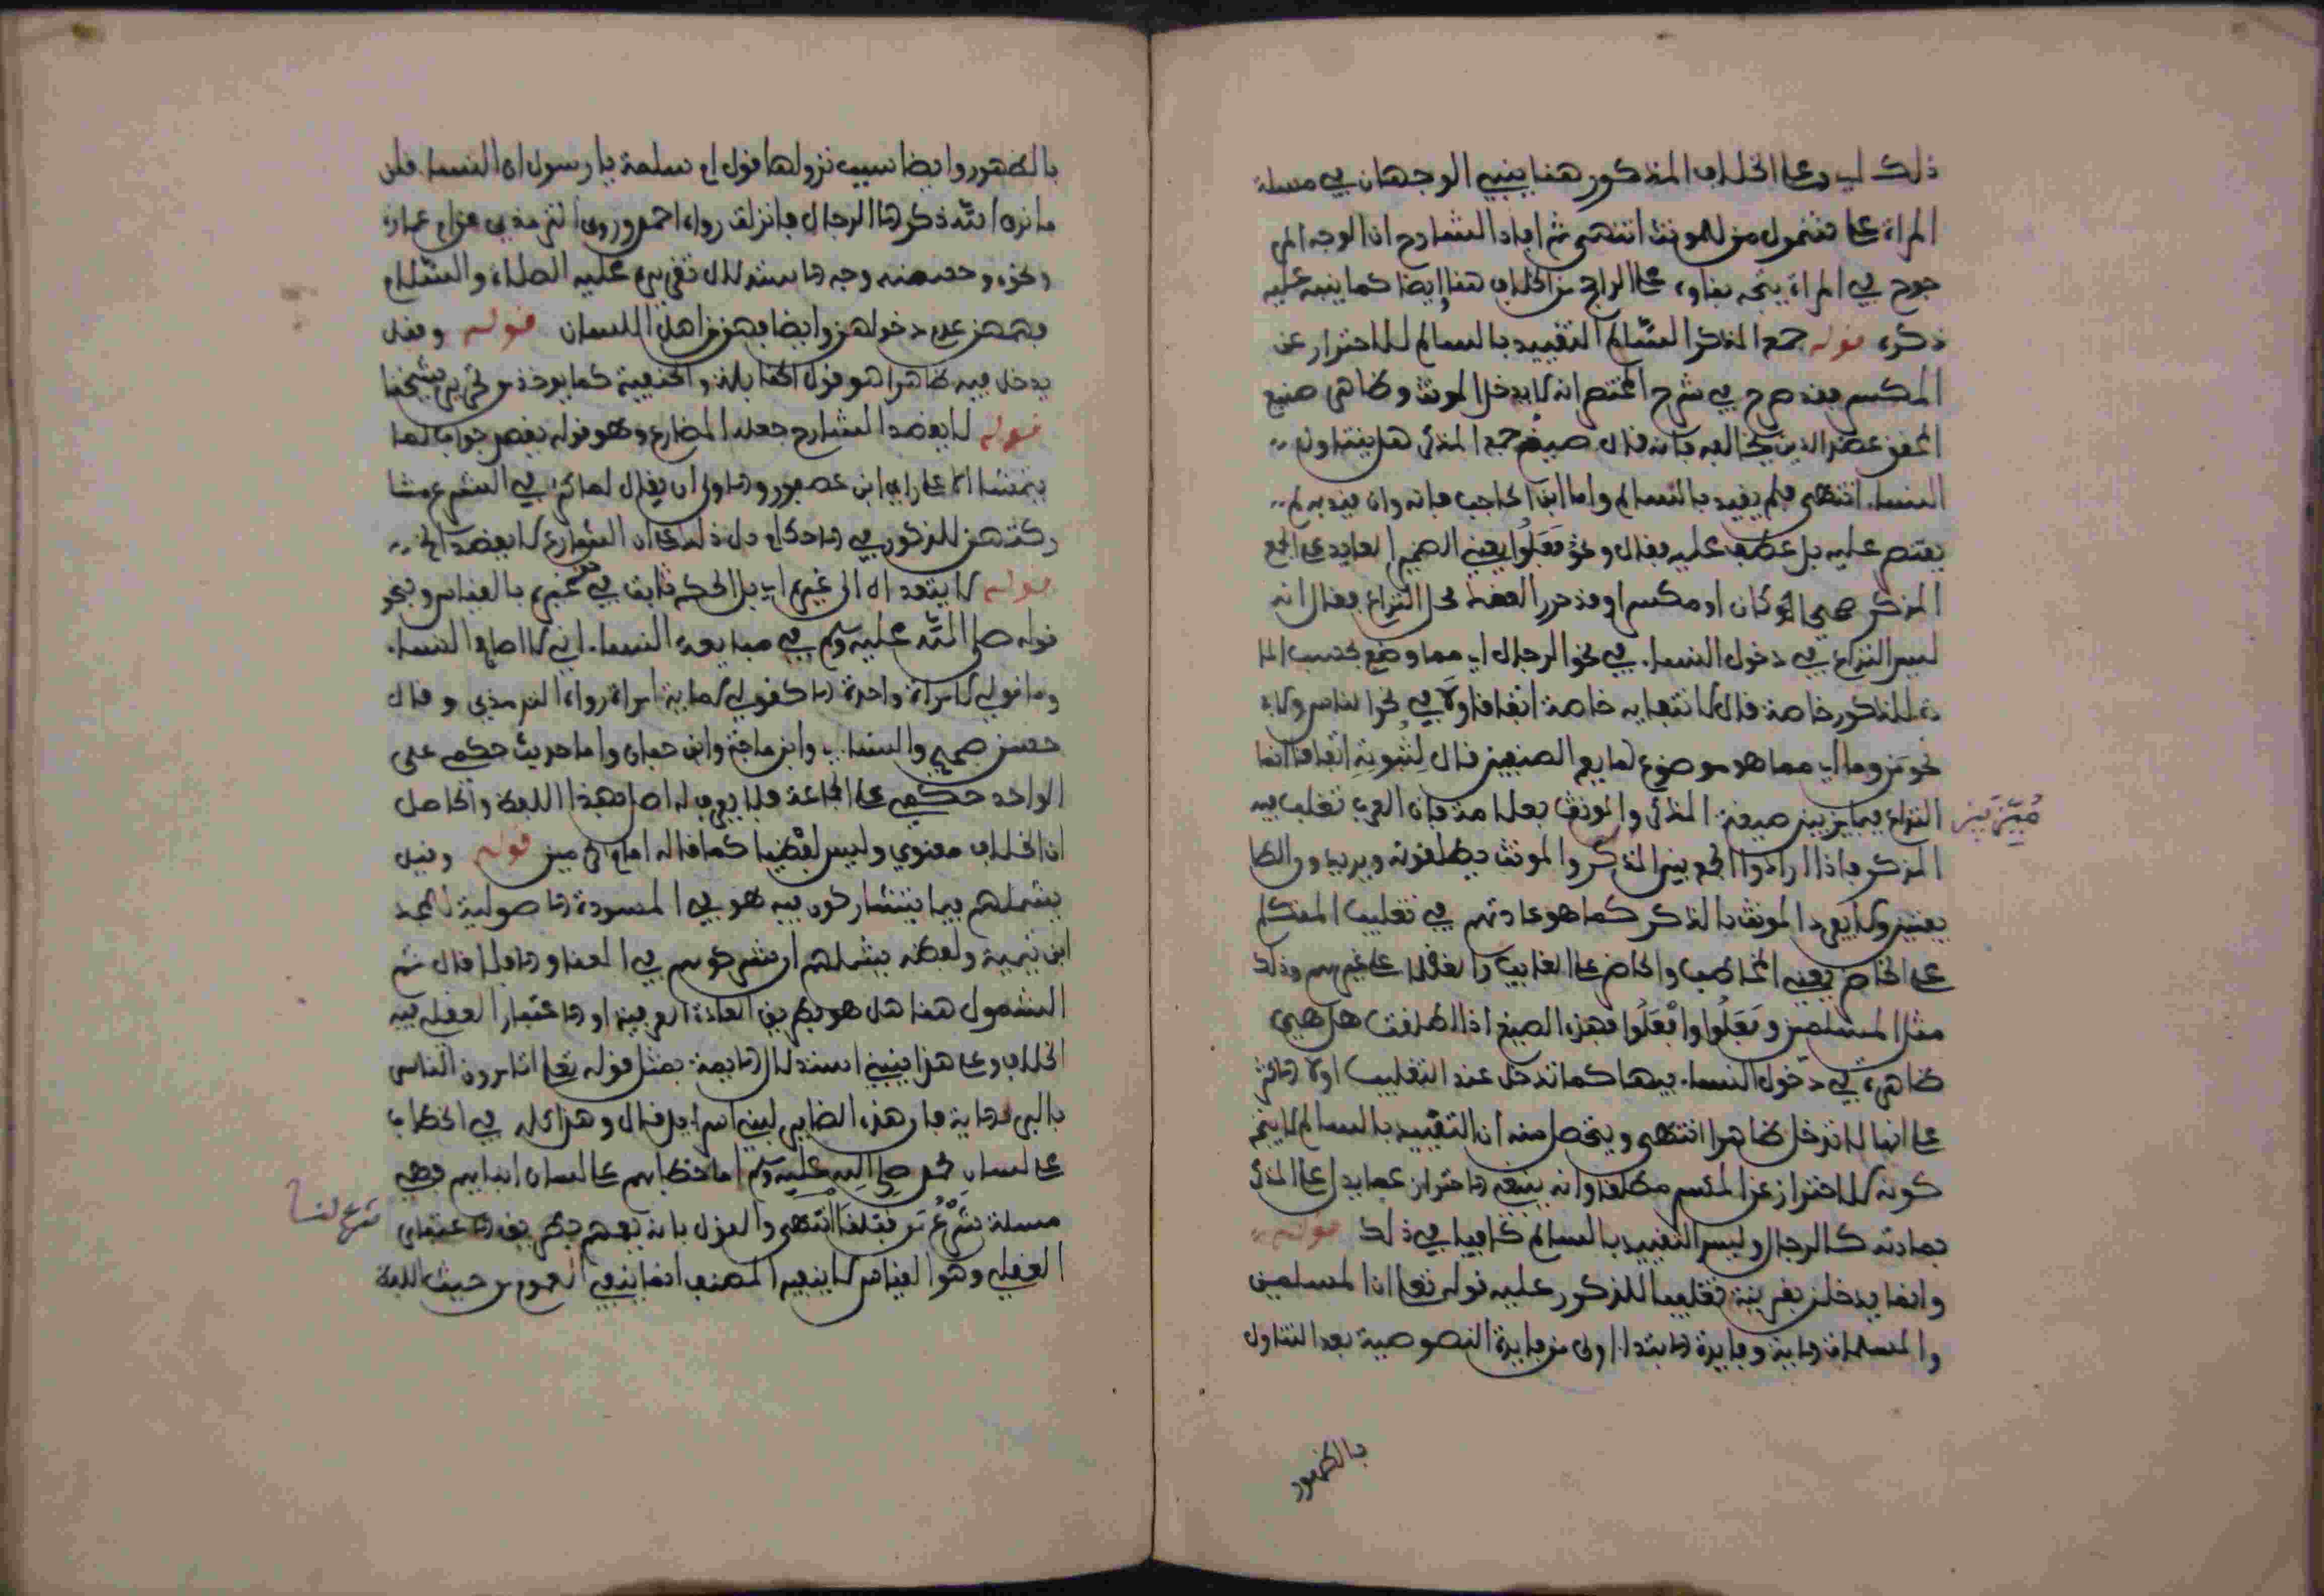 ذلك اي وعلى الخلاف المذكور هنا ينبني الوجهان في مسلة
المراة على تشمول من للمونث انتهى ثم افاد الشارح ان الوجه المر
جوح في المراة يتجه بناوه على الراجح من الخلاف هنا ايضا كما ينبه عليه
ذكره قوله جمع المذكر السالم التقييد بالسالم للاحتراز عن
المكسر فقد صرح في شرح المختصر انه لا يدخل المونث وظاهر صنيع
المحقق عضد الدين يخالفه فانه قال صيغة جمع المذكر هل يتناول
النساء انتهى فلم يقيد بالسالم واما ابن الحاجب فانه وان قيد به لم
يقتصر عليه بل عطف عليه فقال ونحو فعلوا يعني الضمير العايد على الجمع
المذكر صحيحا كان او مكسرا وقد حرر العضد محل النزاع فقال انه
ليس النزاع في دخول النساء في نحو الرجال اي مما وضع بحسب الما
دة للذكور خاصة قال لانتفايه خاصة اتفاقا ولا في نحو الناس ولا
نحو من وما اي مما هو موضوع لما يعم الصنفين قال لثبوته اتفاقا انما
النزاع فيما ميز بين صيغة المذكر والمونث بعلامة فان العرب تغلب فيه
المذكر فاذا ارادوا الجمع بين المذكر والمونث يطلقونه ويريدون الطا
يفتين ولا يفرد المونث بالذكر كما هو عادتهم في تغليب المتكلم
على الحاضر يعني المخاطب والحاضر على الغايب والعقلا على غيرهم وذلك
مثل المسلمين وفعلوا وافعلوا فهذه الصيغ اذا اطلقت هل هي
ظاهرة في دخول النساء فيها كما تدخل عند التغليب اولا الاكثر
على انها لا تدخل ظاهرا انتهى ويتحصل منه ان التقييد بالسالم لا يتجه
كونه للاحتراز عن المكسر مطلقا وانه ينبغي الاحتراز عما يدل على المذكر
بمادته كالرجال وليس التقييد بالسالم كافيا في ذلك قوله
وانما يدخلن بقرينة تغليبا للذكور عليه قوله تعالى ان المسلمين
والمسلمات الاية وفايدة الابتداء اولى من فايدة النصوصية بعد التناول
مميزتين
بالظهور
بالظهور وايضا سبب نزولها قول ام سلمة يا رسول الله ان النساء قلن
ما نرى الله ذكر الا الرجال فانزلت رواه احمد وروى الترمذي عن ام عمارة
نحوه وحسنه وجه الاستدلال تقريره عليه الصلاة والسلام
فهمهن عدم دخولهن وايضا فهن من اهل اللسان قوله وقيل
يدخلن فيه ظاهرا هو قول الحنابلة والحنفية كما يوخذ من تحرير شيخنا
قوله لا يقصد الشارع جعل المضارع وهو قوله يقصد جوابا لما
يتمشى الا على راي ابن عصفور والاولى ان يقال لما كثر في الشرع مشا
ركتهن للذكور في الاحكام دل ذلك على ان الشارع لا يقصد الخ
قوله لا يتعداه الى غيره اي بل الحكم ثابت في غيره بالقياس ونحو
قوله صلى الله عليه وسلم في مبايعة النساء اني لا اصافح النساء
وما قولي لامراة واحدة الا كقولي لماية امراة رواه الترمذي وقال
حسن صحيح والنساءي وابن ماجة وابن حبان واما حديث حكمي على
الواحد حكمي على الجماعة فلا يعرف له اصل بهذا اللفظ والحاصل
ان الخلاف معنوي وليس لفظيا كما قاله امام الحرمين قوله وقيل
يشملهم فيما يتشاركون فيه هو في المسودة الاصولية لمجد
ابن تيمية ولفظه يشملهم ان شركوهم في المعنى والا فلا قال ثم
الشمول هنا هل هو بطريق العادة العرفية او الاعتبار العقلي فيه
الخلاف وعلى هذا ينبني استدلال الايمة بمثل قوله تعالى اتامرون الناس
بالبر الاية فان هذه الضماير لبني اسراءيل قال وهذا كله في الخطاب
على لسان محمد صلى الله عليه وسلم اما خطابهم على لسان انبيايهم فهي
مسلة شرع من قبلنا انتهى والقول بانه يعمهم بطريق الاعتبار
العقلي وهو القياس لا ينفيه المصنف انما ينفي العموم من حيث اللفظ
شرع لنا